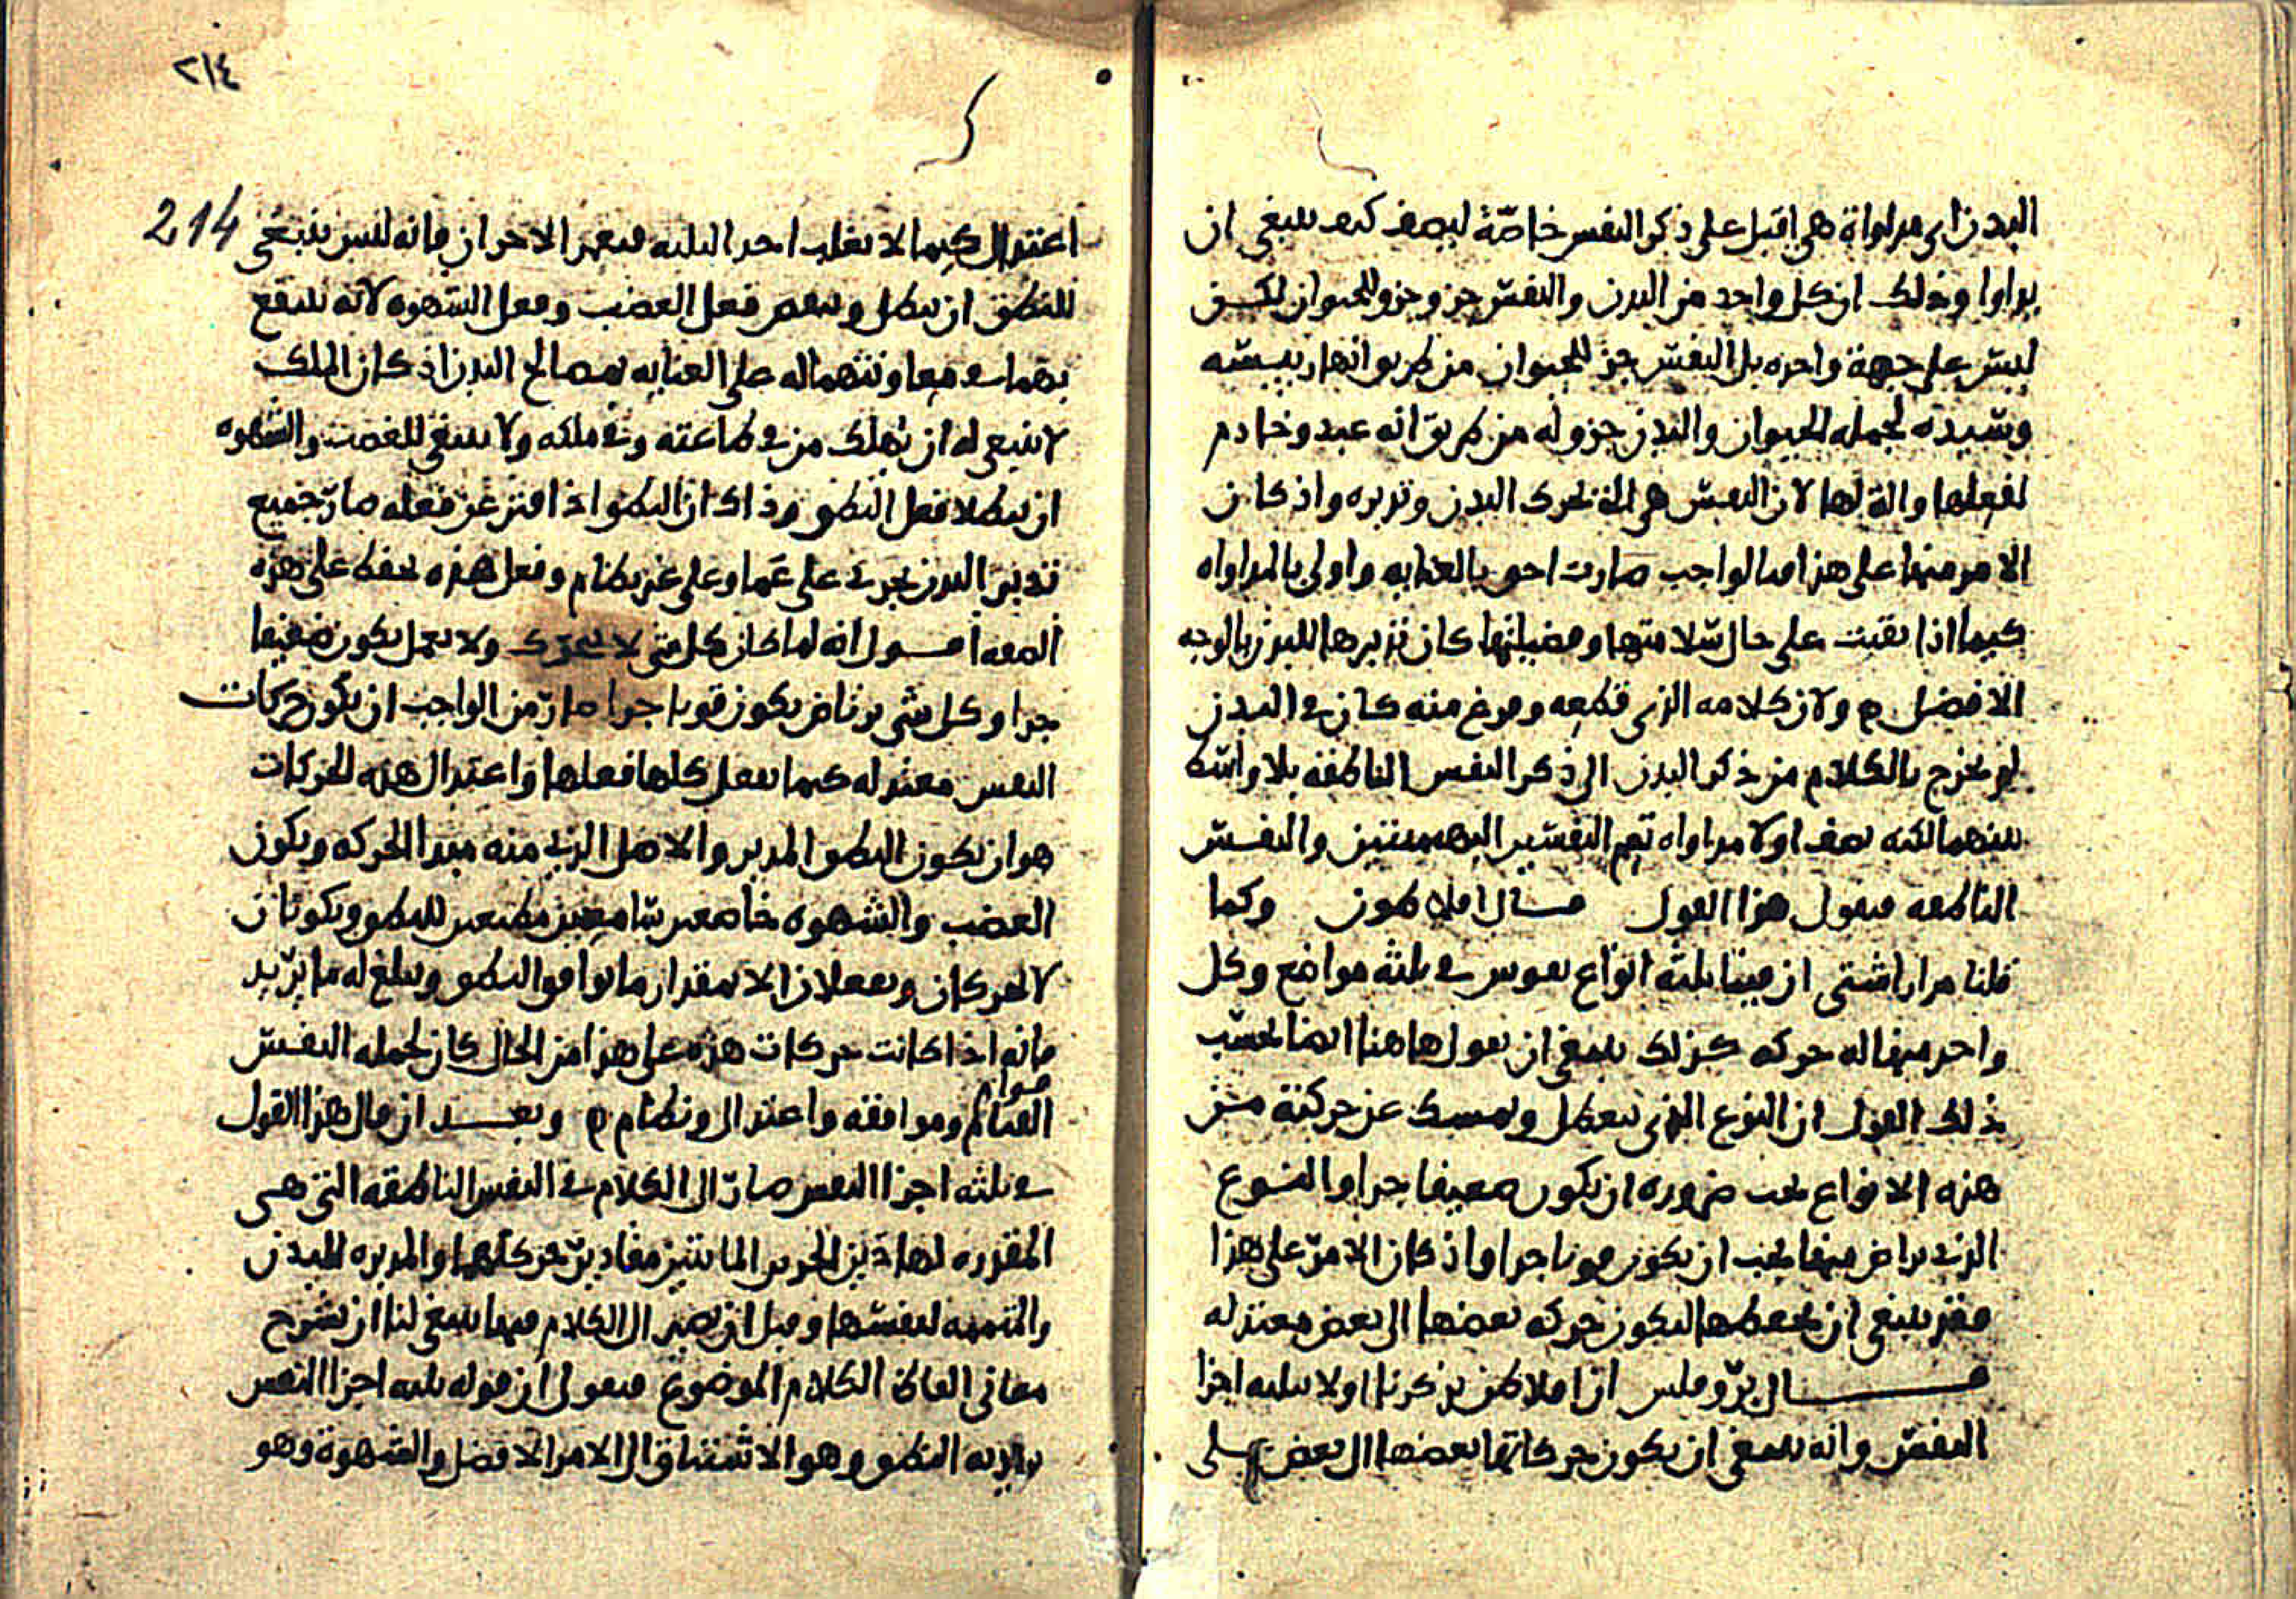 البدن اى مداواة هى اقبل على ذكر النفس خاصّةً ليصف كيف ينبغى ان
يداوا وذلك ان كل واحد من البدن والنفس جز وجزو للحيوان لكن
ليس على جهة واحده بل النفس جز للحيوان من طريق انها رييسه
وسيده لجمله الحيوان والبدن جزو له من طريق انه عبد وخادم
لفعلها والة لها لان النفس هى التى تحرك البدن وتدبره واذ كان
الامر منها على هذا فبالواجب صارت احق بالعنايه واولى بالمداواه
كيما اذا بقيت على حال سلامتها وفضيلتها كان تدبيرها للبدن بالوجه
الافضل ولان كلامه الذى قطعه وفرغ منه كان فى البدن
لم يخرج بالكلام من ذكر البدن الى ذكر النفس الناطقه بلا واسطه
بينهما لكنه يصف اولا مداواه تعم النفسين البهيميتين والنفس
الناطقه فيقول هذا القول قال افلاطون وكما
قلنا مرارا شتى ان فينا ثلثه انواع نفوس فى ثلثه مواضع وكل
واحد منها له حركه كذلك ينبغى ان نقول هاهنا ايضا بحسب
ذلك القول ان النوع الذى يتعطل ويمسك عن حركته من
هذه الانواع يجب ضروره ان يكون ضعيفا جدا والنوع
الذى يراض منها يجب ان يكون قويا جدا واذ كان الامر على هذا
فقد ينبغى ان نحفظها لتكون حركه بعضها الى بعض معتدله
قال بروقلس ان افلاطن يذكرنا اولا بثلثه اجزا
النفس وانه ينبغى ان يكون حركاتها بعضها الى بعض على
٢١٤
214
اعتدال كيما لا يغلب احد الثلثه فيقهر الاخران فانه ليس ينبغى
للنطق ان يبطل وينقص فعل الغضب وفعل الشهوه لانه ينتفع
بهما فى معاونتهما له على العنايه بمصالح البدن اذ كان الملك
لا ينبغى له ان يهلك من فى طاعته وفى ملكه ولا ينبغى للغضب والشهوه
ان يبطلا فعل النطق وذاك ان النطق اذا فتر عن فعله صار جميع
تدبير البدن يجرى على عما وعلى غير نظام وفعل هذه يحفظ على هذه
الصفه اقول انه لما كان كل شى لا يتحرك ولا يعمل يكون ضعيفا
جدا وكل شى يرتاض يكون قويا جدا صار من الواجب ان تكون حركات
النفس معتدله كيما تفعل كلها فعلها واعتدال هذه الحركات
هو ان يكون النطق المدبر والاصل الذى منه مبدا الحركه ويكون
الغضب والشهوه خاضعين سامعين مطيعين للنطق ويكونان
لا يتحركان ويفعلان الا بمقدار ما يوافق النطق ويبلغ له ما يريد
فانه اذا كانت حركات هذه على هذا من الحال كان لجمله النفس
قوام
القيام وموافقه واعتدال ونظام وبعد ان قال هذا القول
فى ثلثه اجزا النفس صار الى الكلام فى النفس الناطقه التى هى
المقدره لهاذين الجزين المايتين مقادير حركاتهما والمدبره للبدن
والمتممه لنفسها وقبل ان نصير الى الكلام فيها ينبغى لنا ان نشرح
معانى الفاظ الكلام الموضوع فيقول ان قوله ثلثه اجزا النفس
يريد به النطق وهو الاشتياق الى الامر الافضل والشهوة وهو